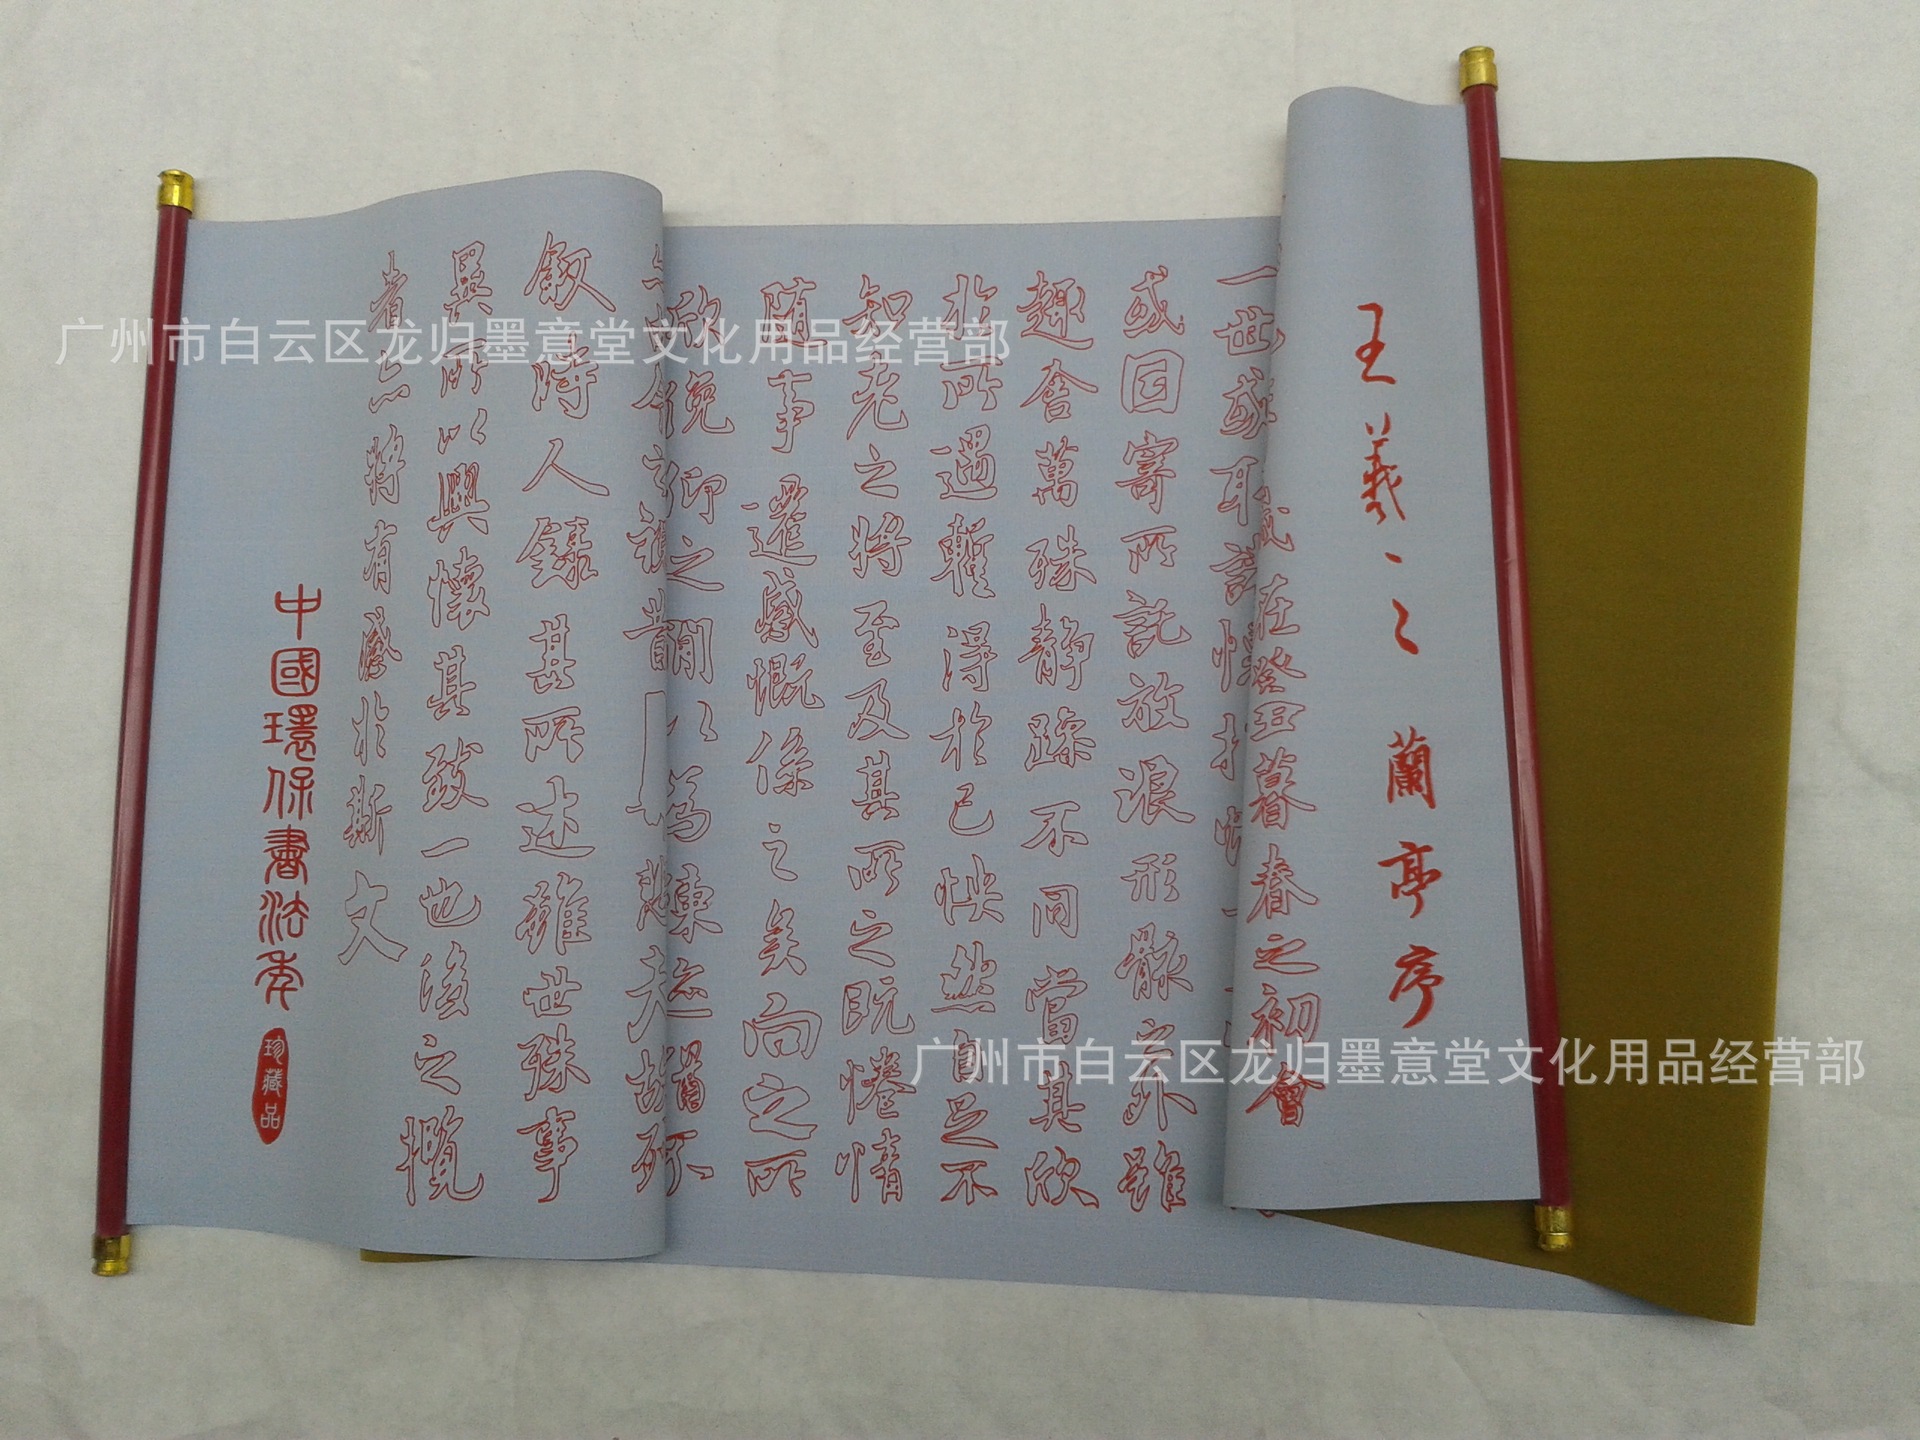 王羲之之蘭亭序
在癸丑暮春之初會
一世或取諸懷抱
或因寄所託放浪形骸之外雖
趣舍萬殊静躁不同當其欣
於所遇暫得於己怏然自足不
知老之將至及其所之既惓情
随事遷感慨係之矣向之所
欣俛仰之閒以為陳迹猶不
昔悲夫故列
叙時人錄其所述雖世殊事
異所以興懷其致一也後之攬
者亦將有感於斯文
中國環保書法布
珍藏品
广州市白云区龙归墨意堂文化用品经营部
广州市白云区龙归墨意堂文化用品经营部